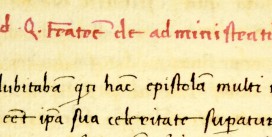 d. Q. Fratrē de administrati
dubitabā qn hāc epistolam multi
eēt ipā sua celeritate supatur